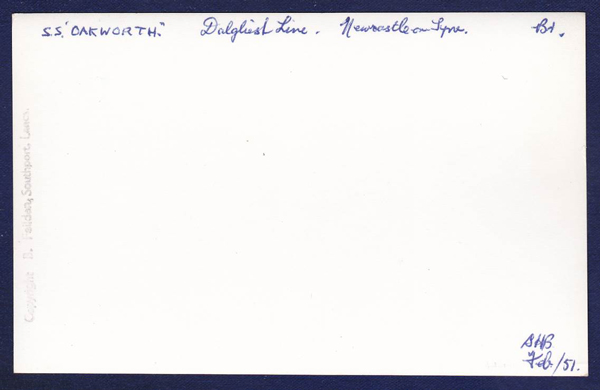 S.S. "OAKWORTH." Dalgliesh Line. Newcastle-on-Tyne. Br.
Copyright B. Feilden, Southport. Lancs.
SHB
Feb/51.